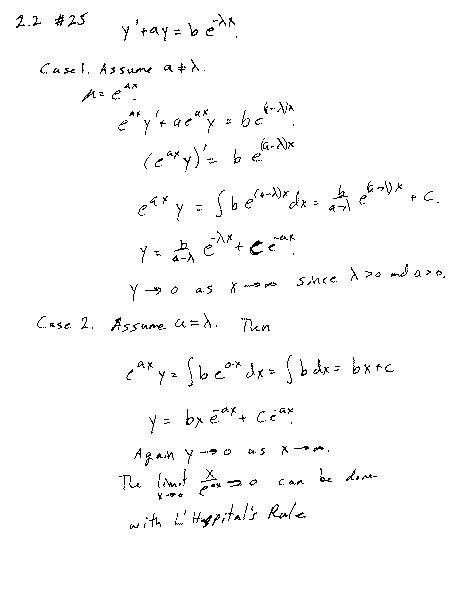 2.2 #25 y' + ay = b e^{-λx}.
Case 1. Assume a ≠ λ.
μ = e^{ax}.
e^{ax} y' + a e^{ax} y = b e^{(a-λ)x}.
(e^{ax} y)' = b e^{(a-λ)x}
e^{ax} y = ∫ b e^{(a-λ)x} dx = \frac{b}{a-λ} e^{(a-λ)x} + C.
y = \frac{b}{a-λ} e^{-λx} + C e^{-ax}.
y → 0 as x → ∞ since λ > 0 and a > 0.
Case 2. Assume a = λ. Then
e^{ax} y = ∫ b e^{0·x} dx = ∫ b dx = bx + c
y = bx e^{-ax} + C e^{-ax}.
Again y → 0 as x → ∞.
The limit_{x→∞} \frac{x}{e^{ax}} → 0 can be done
with L'Hopital's Rule